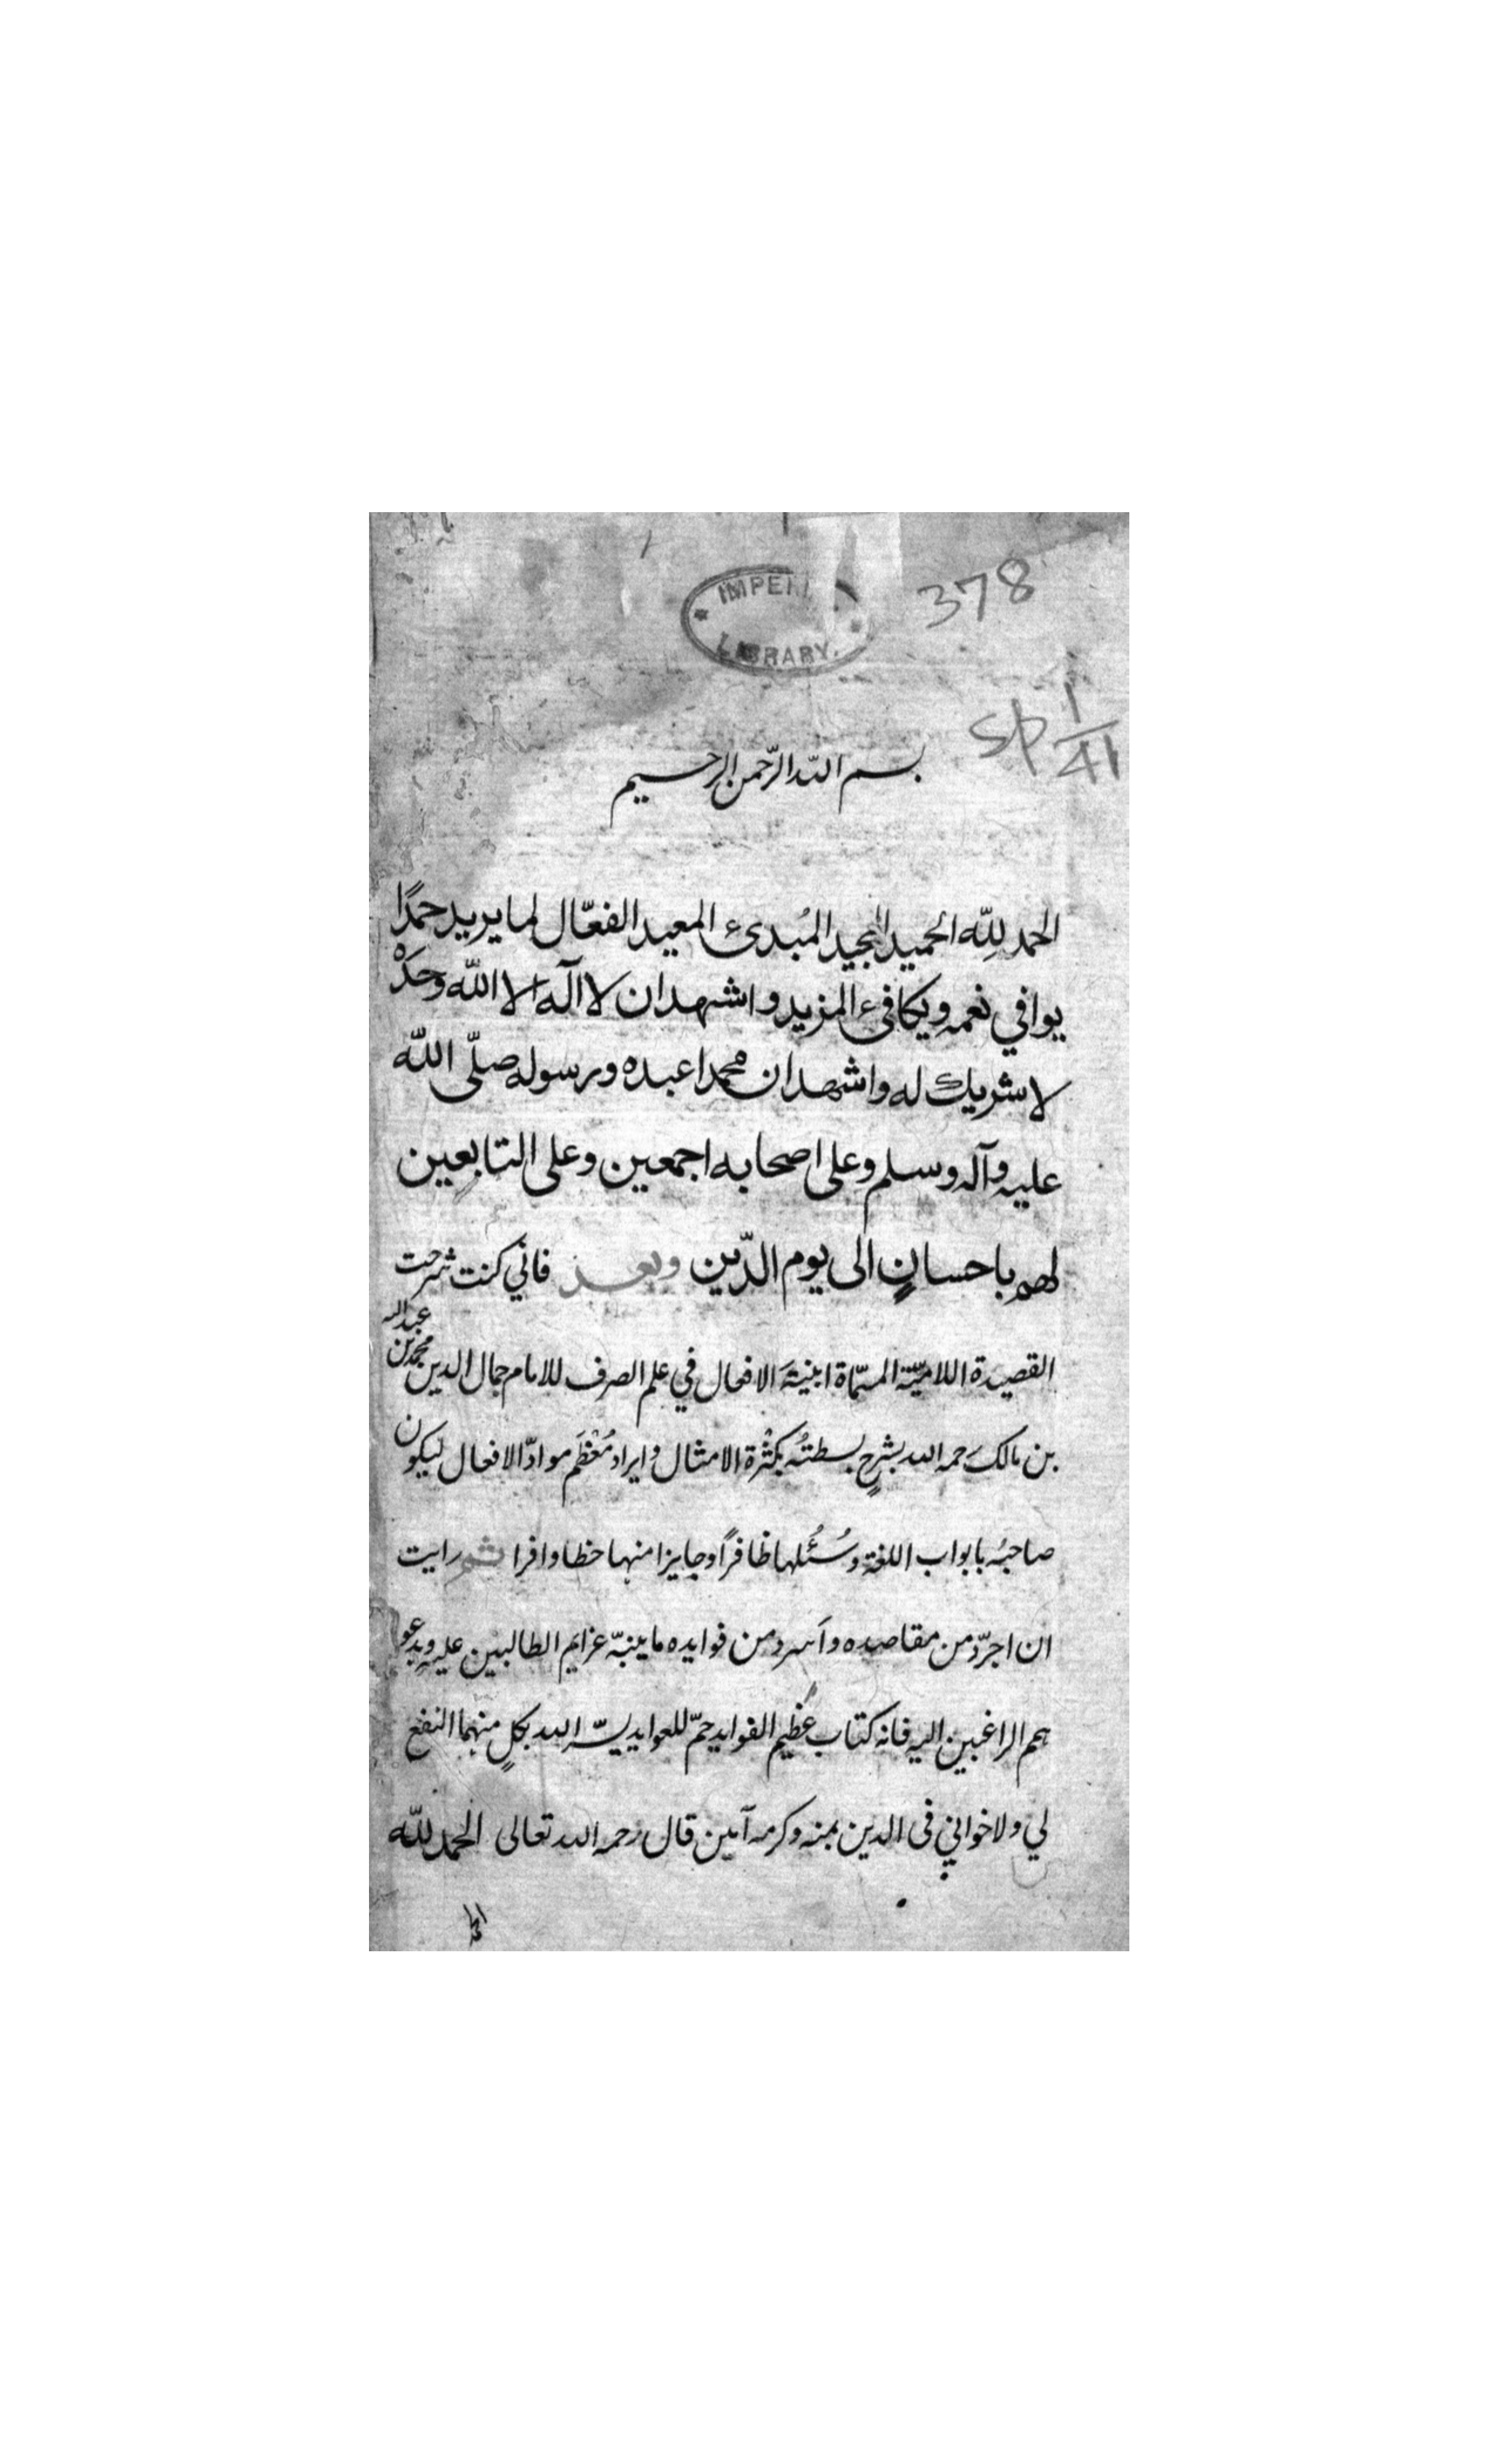 378
IMPERI
LIBRARY.
Sp 1/41
بسم الله الرحمن الرحيم
الحمد لله الحميد المجيد المُبدئ المعيد الفعّال لما يريد حمدًا
يوافي نعمه ويكافئ المزيد واشهد ان لا اله الا الله وحدْ
لا شريك له واشهد ان محمدا عبده ورسوله صلّى الله
عليه وآله وسلم وعلى اصحابه اجمعين وعلى التابعين
لهم باحسانٍ الى يوم الدّين وبعد فاني كنت شرحت
القصيدة اللاميّة المسمّاة ابنيةَ الافعال في علم الصرف للامام جمال الدين محمد بن عبد الله
بن مالك رحمه الله بشرحٍ بسطتُه بكثْرة الامثال وايراد مُعْظَم موادّ الافعال ليكون
صاحبُه بابواب اللغة وسُبُلها ظافرًا وحايزا منها حظا وافرا ثم رايت
ان اجرّد من مقاصده واسرد من فوايده ما ينبّه عزايم الطالبين عليه ويدعو
همم الراغبين اليه فانه كتاب عظيم الفوايد جمّ للعوايد يسّر الله بكلٍ منهما النفع
لي ولاخواني في الدين بمنه وكرمه آمين قال رحمه الله تعالى الحمد لله